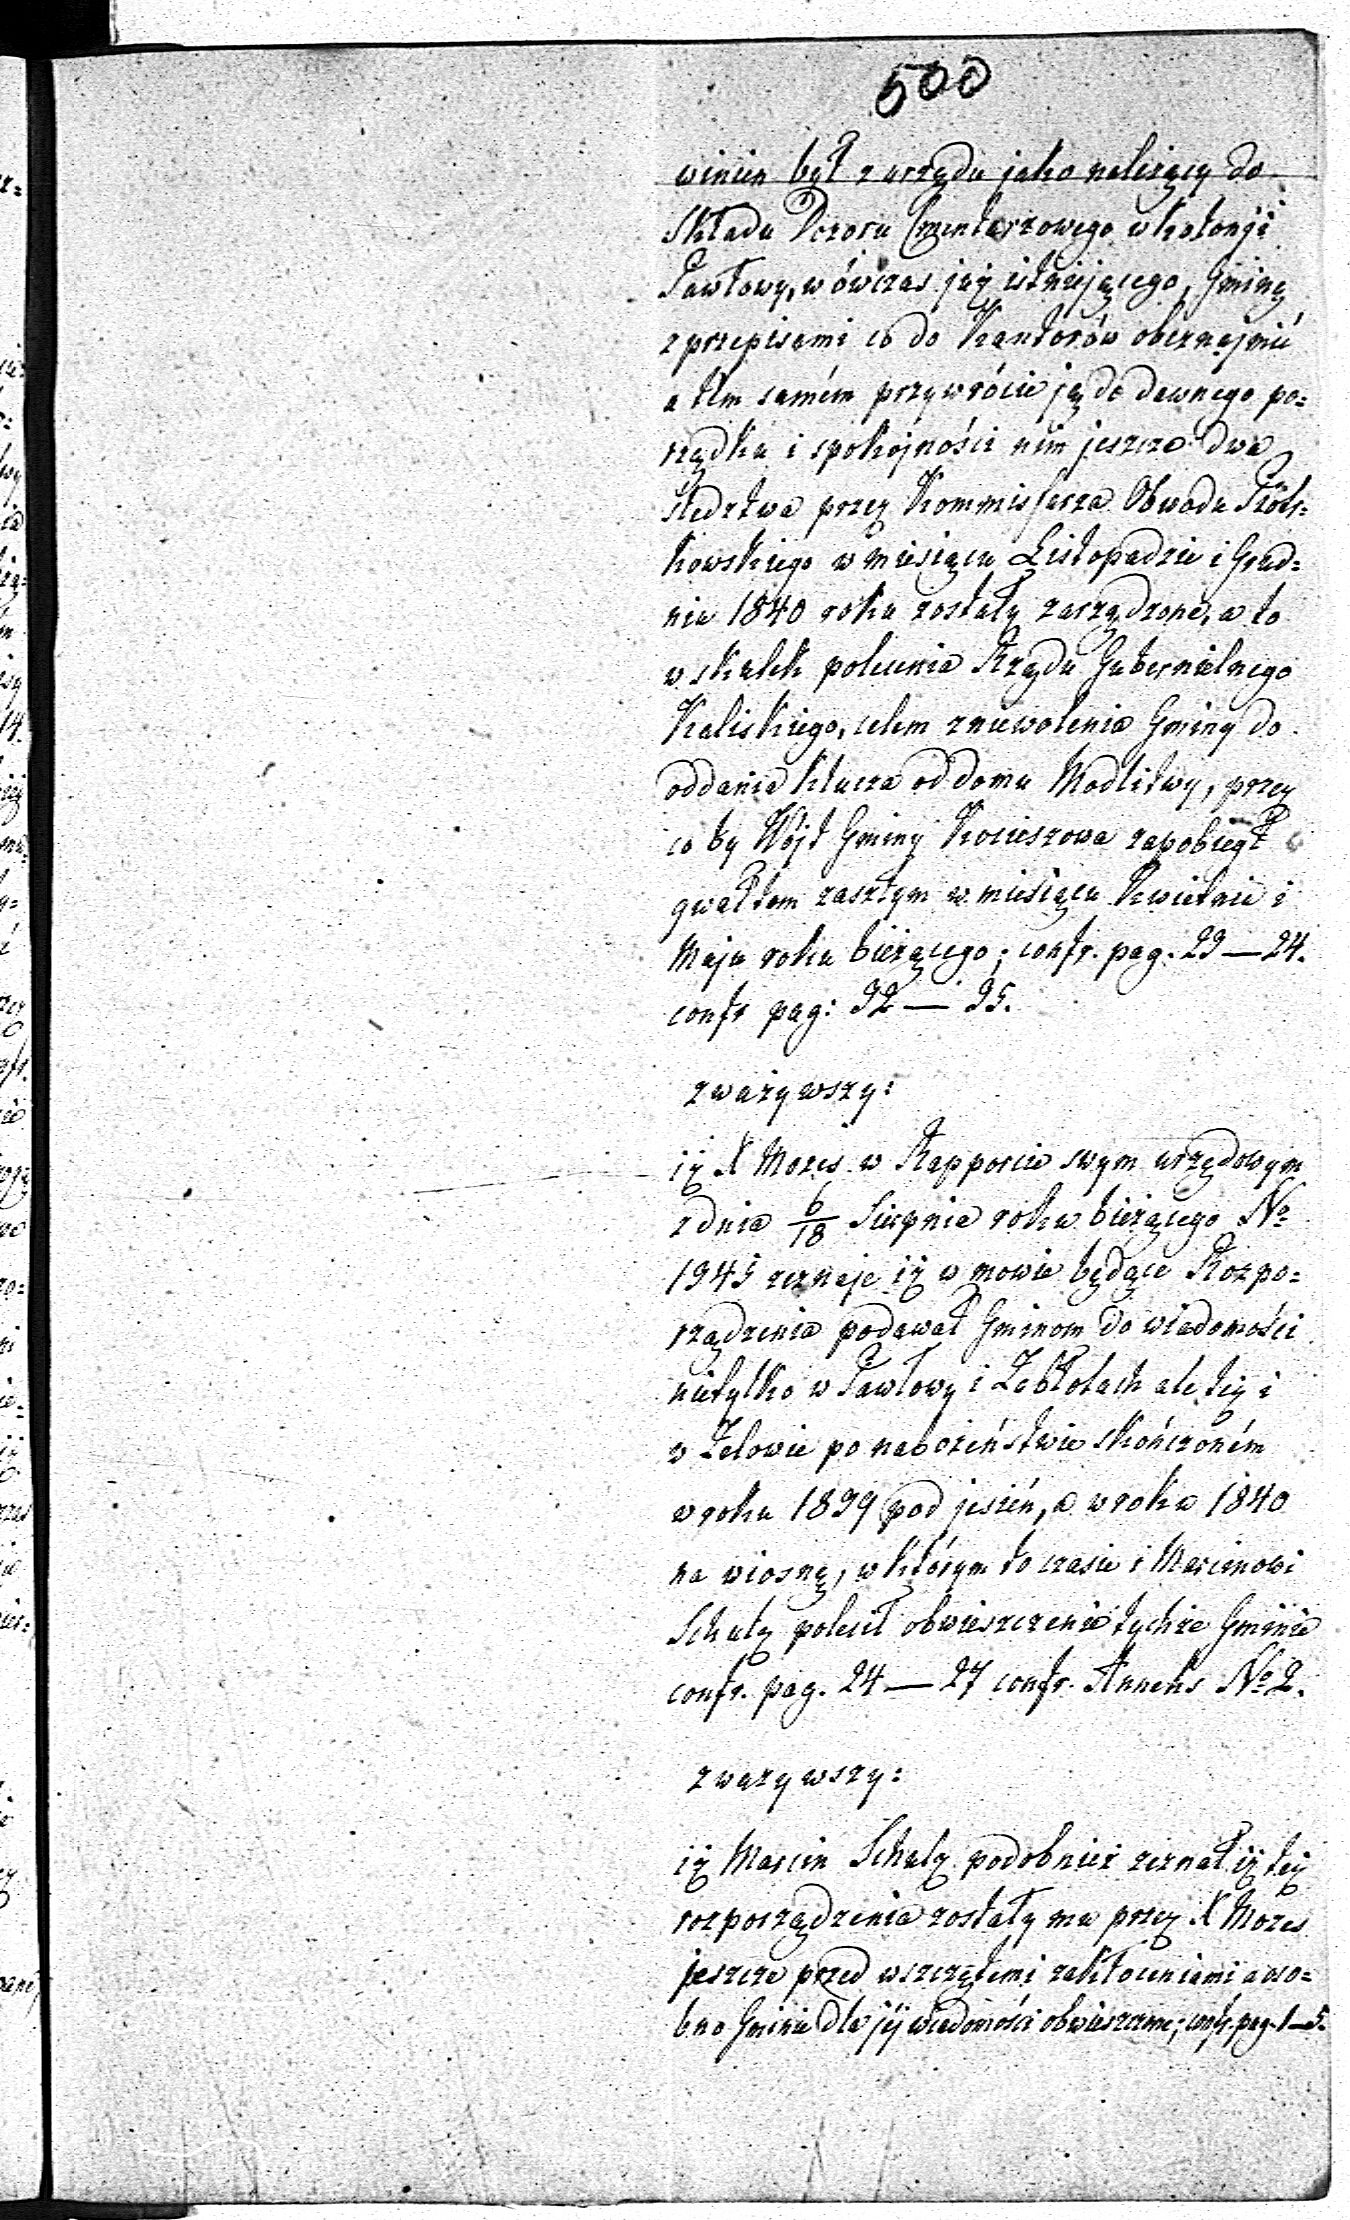 500
winien był z urzędu jako należący do
składu Dozoru Cmentarzowego w kolonji
Pawłowy, w ówczas jéj istniejącego, Gminę
z przepisami co do Kantorów obeznajmić
a tém samém przywrócić ją do dawnego po=
rządku i spokojności nim jeszcze dwa
śledztwa przez Kommissarza Obwodu Piotr=
kowskiego w miesiącu Listopadzie i Grud=
niu 1840 roku zostały zarządzone, a to
w skutek polecenia Rządu Gubernialnego
Kaliskiego, celem zniewolenia Gminy do
oddania klucza od domu Modlitwy, przez
co by Wójt Gminy Kociszowa zapobiegł
gwałtom zaszłym w miesiącu Kwietniu i
Maju roku bieżącego; confr. pag. 23 — 24.
confr pag: 32 — 35.
zważywszy:
iż X Mozes w Rapporcie swym urzędowym
z dnia 6/18 Sierpnia roku bieżącego No
1945 zeznaje iż w mowie będące Rozpo=
rządzenia podawał Gminom do wiadomości
nietylko w Pawłowy i Zabłotach ale też i
w Zelowie po nabożeństwie skończoném
w roku 1839 pod jesień, a w roku 1840
na wiosnę, w którym to czasie i Marcinowi
Schuly polecił obwieszczenie tychże Gminie
confr. pag. 24 — 27 confr. Anneks No 2.
zważywszy:
iż Marcin Schuly podobnież zeznał iż też
rozporządzenia zostały mu przez X Mozes
jeszcze przed wszczętemi zakłóceniami a oso=
bno Gminie dla jéj wiadomości obwieszczone; confr. pag. 1—5.